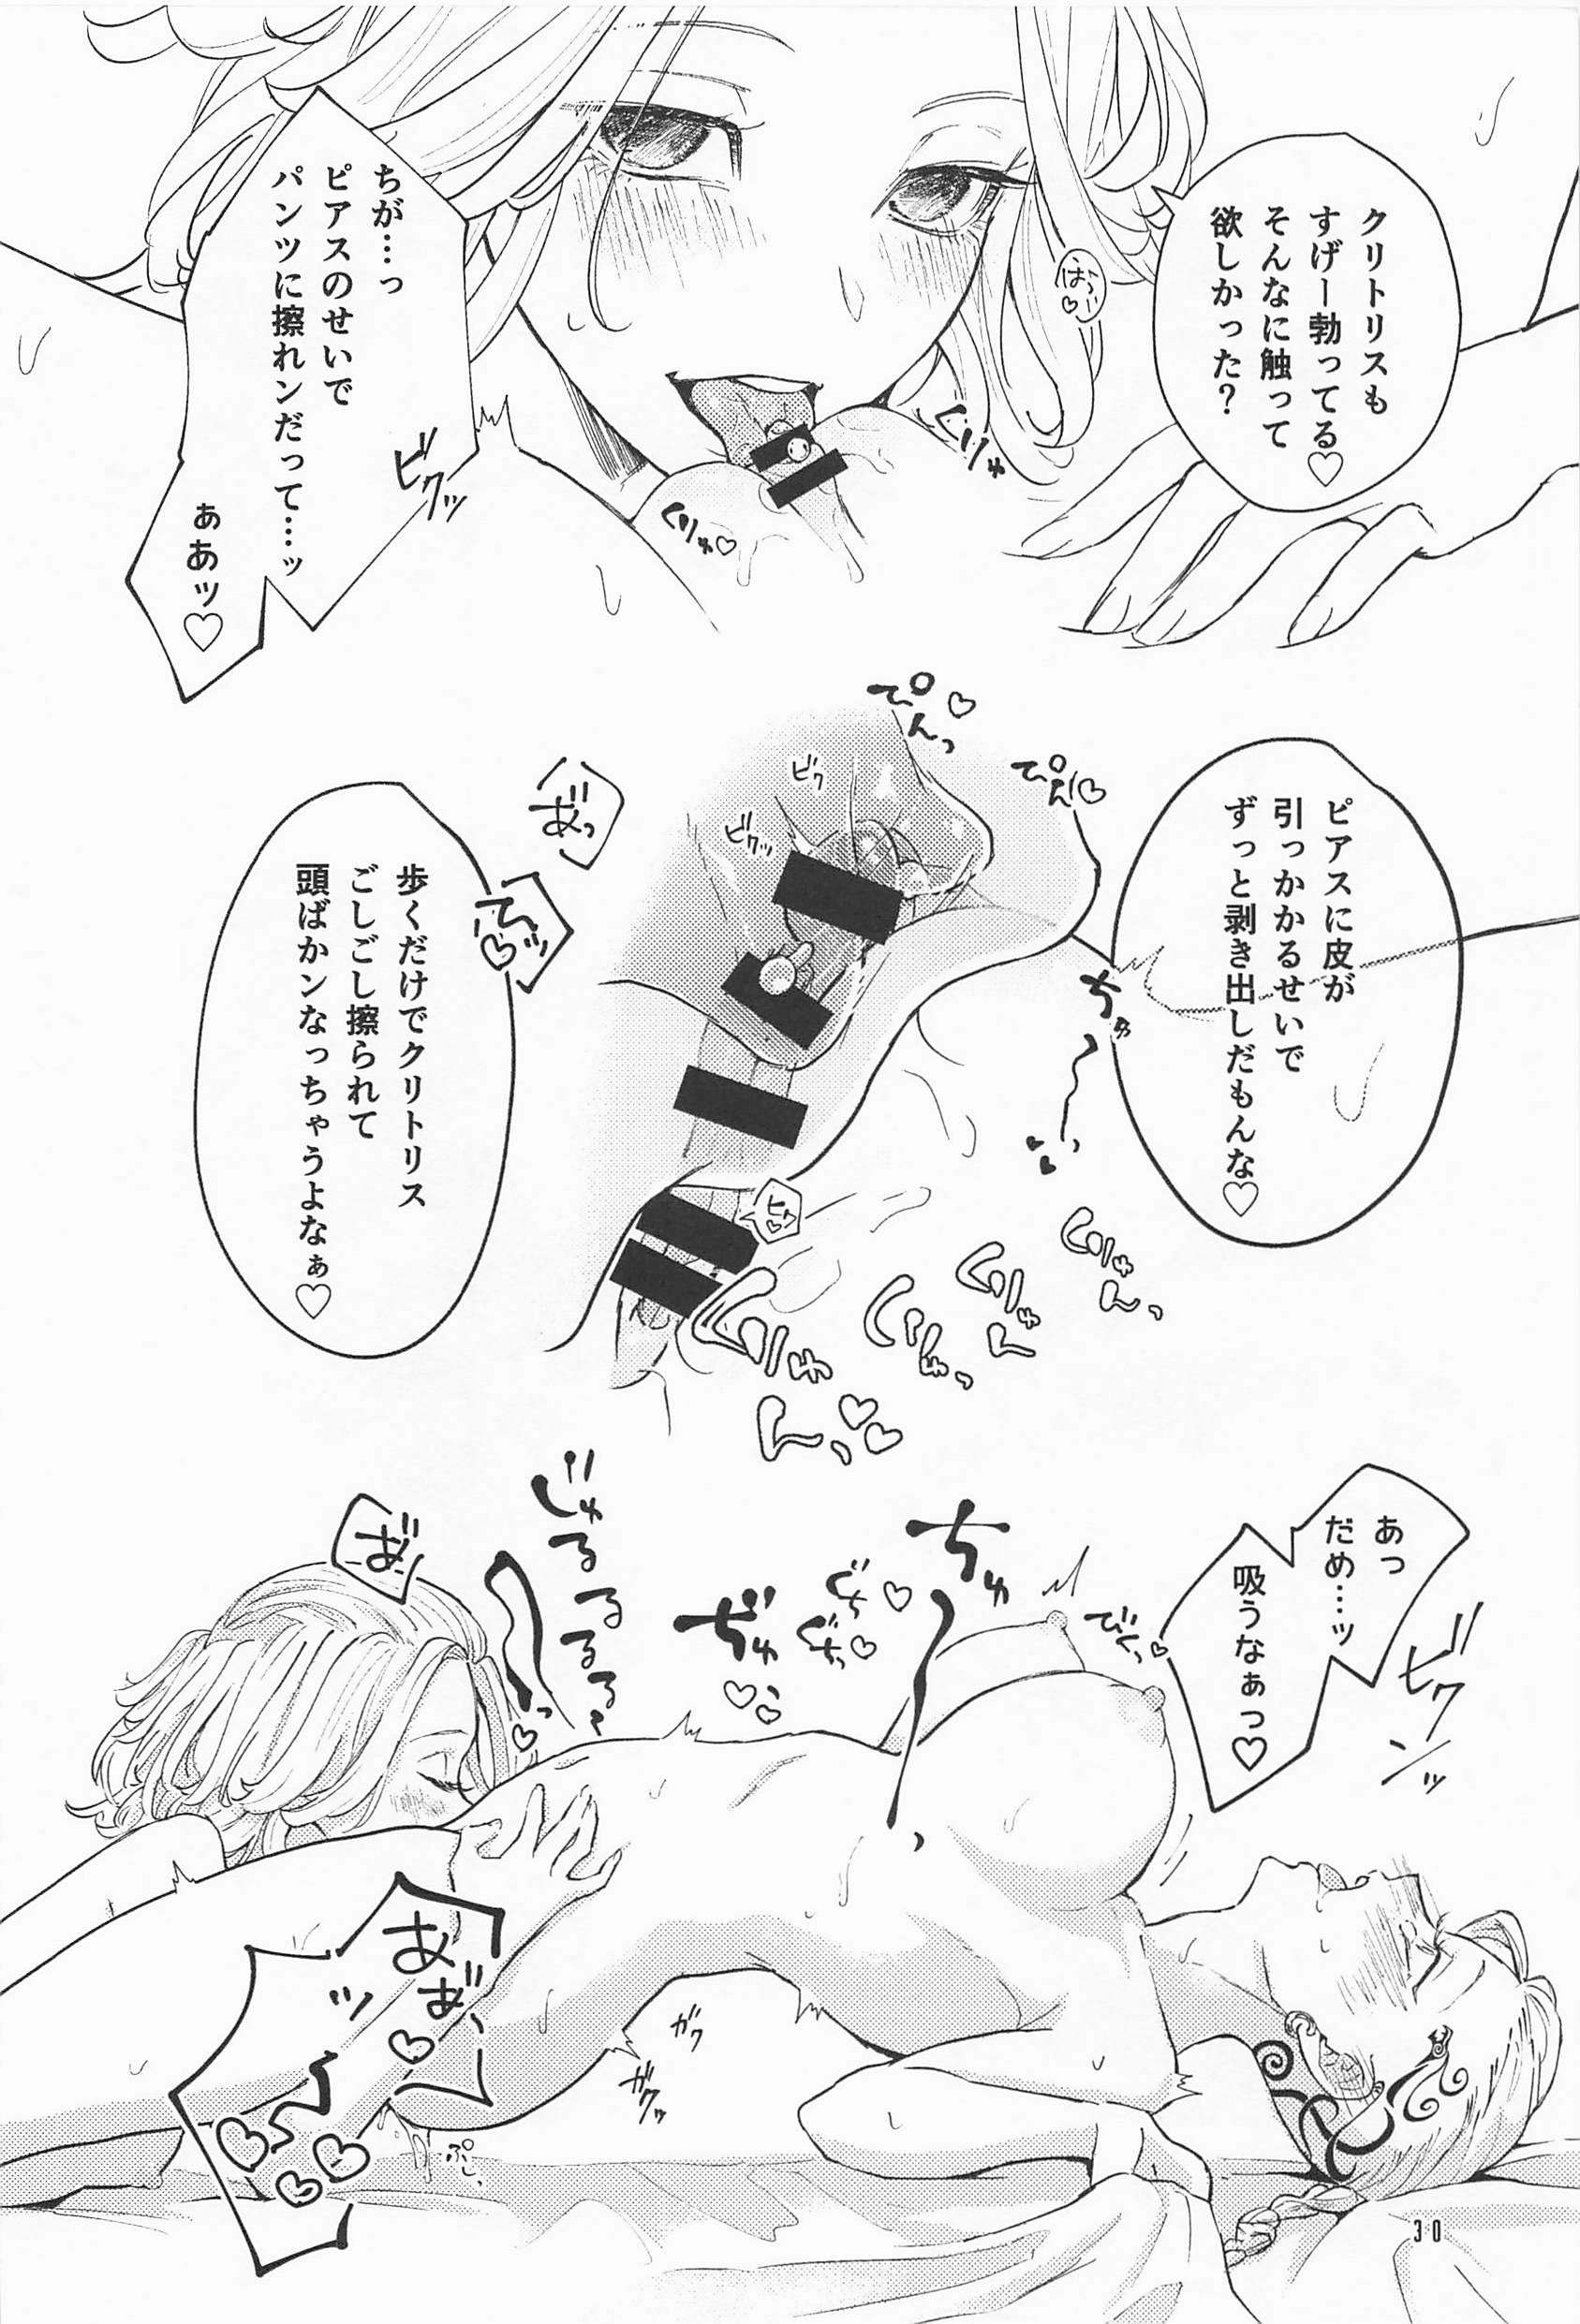 クリトリスも
すげー勃ってる♡
そんなに触って
欲しかった?
はっ♡
ちが…っ
ピアスのせいで
パンツに擦れンだって…ッ
ぁあッ♡
ビクッ
くりゅ
くりゅ♡
ぴんっ♡
ぴんっ♡
ピアスに皮が
引っかかるせいで
ずっと剥き出しだもんな♡
ビク
ビクッ
あ゛っ
歩くだけでクリトリス
ごしごし擦られて
頭ばかンなっちゃうよなぁ♡
ちゅ〜っ
ビク
くりゅんっ
くりゅん
くりゅっ
くりゅん、♡♡
あっ
だめ…ッ
吸うなぁっ♡
ビクンッ
びくっ♡
ちゅーっ
ぐちぐちっ♡♡
ぢゅ♡
じゅるるるるる
あ゛
あぁ゛♡ッ〜♡♡♡
ガク
ガクッ
ぷしっ
30